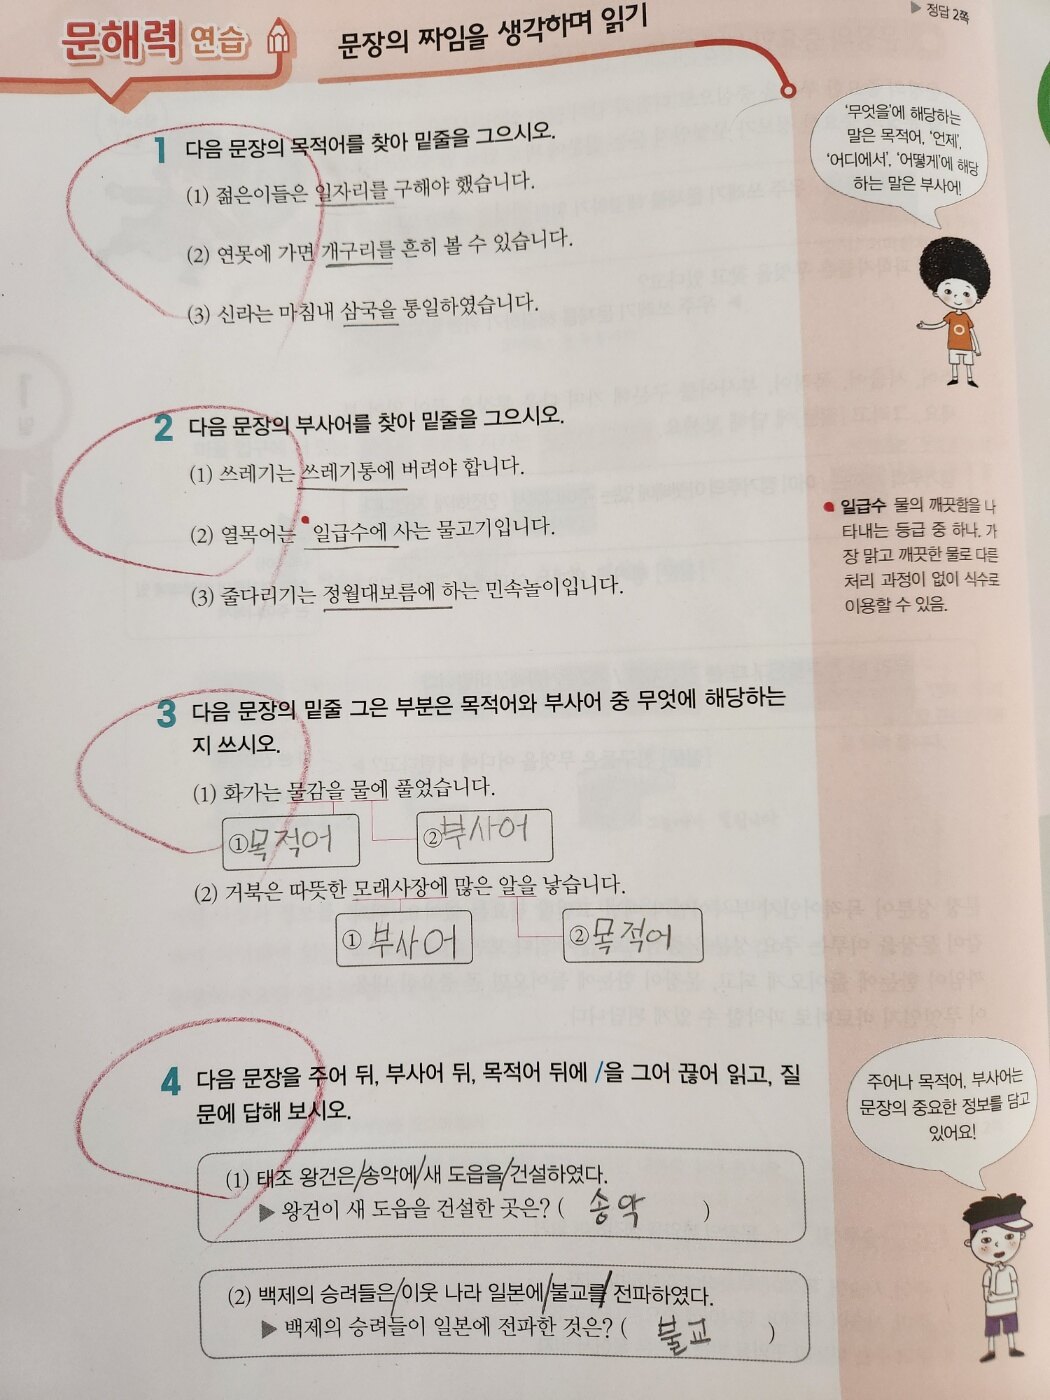 ▶ 정답 2쪽
문해력 연습
문장의 짜임을 생각하며 읽기
'무엇을'에 해당하는
말은 목적어, '언제',
'어디에서', '어떻게'에 해당
하는 말은 부사어!
1 다음 문장의 목적어를 찾아 밑줄을 그으시오.
(1) 젊은이들은 일자리를 구해야 했습니다.
(2) 연못에 가면 개구리를 흔히 볼 수 있습니다.
(3) 신라는 마침내 삼국을 통일하였습니다.
2 다음 문장의 부사어를 찾아 밑줄을 그으시오.
(1) 쓰레기는 쓰레기통에 버려야 합니다.
(2) 열목어는 일급수에 사는 물고기입니다.
(3) 줄다리기는 정월대보름에 하는 민속놀이입니다.
일급수 물의 깨끗함을 나
타내는 등급 중 하나. 가
장 맑고 깨끗한 물로 다른
처리 과정이 없이 식수로
이용할 수 있음.
3 다음 문장의 밑줄 그은 부분은 목적어와 부사어 중 무엇에 해당하는
지 쓰시오.
(1) 화가는 물감을 물에 풀었습니다.
①목적어 ②부사어
(2) 거북은 따뜻한 모래사장에 많은 알을 낳습니다.
① 부사어 ②목적어
4 다음 문장을 주어 뒤, 부사어 뒤, 목적어 뒤에 /을 그어 끊어 읽고, 질
문에 답해 보시오.
(1) 태조 왕건은/송악에/새 도읍을/건설하였다.
▶ 왕건이 새 도읍을 건설한 곳은? ( 송악 )
(2) 백제의 승려들은/이웃 나라 일본에/불교를/전파하였다.
▶ 백제의 승려들이 일본에 전파한 것은? ( 불교 )
주어나 목적어, 부사어는
문장의 중요한 정보를 담고
있어요!